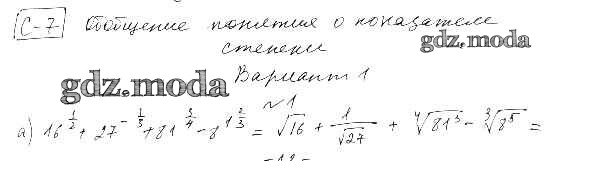 С-7 Обобщение понятия о показателе
степени
gdz.moda
Вариант 1
gdz.moda
№1
а) 16^{1/2} + 27^{-1/3} + 81^{3/4} - 8^{1 2/3} = √16 + 1/√27 + ⁴√(81³) - ³√(8⁵) =
-11-